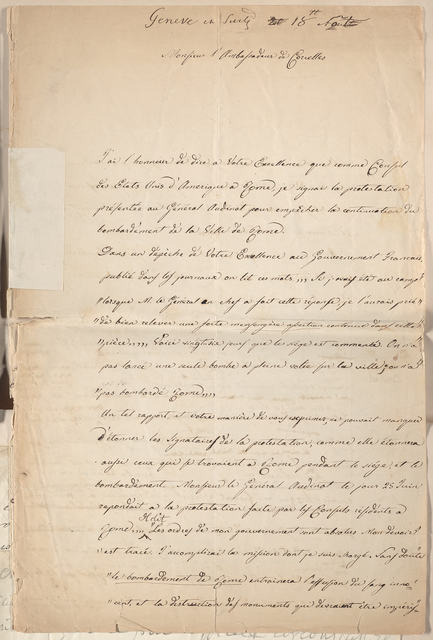 Genève en Suisse 18 Août
Monsieur l'Ambassadeur de Corcelles
J'ai l'honneur de dire à Votre Excellence que comme Consul
des Etats Unis d'Amerique à Rome, je signai la protestation
présentée au Général Oudinot pour empêcher la continuation du
bombardement de la Ville de Rome.
Dans un dépêche de Votre Excellence au Gouvernement Francais,
publié dans les journaux on lit ces mots ,,, Si j'avais été au camp
"lorsque M. le Général en chef a fait cette réponse, je l'aurais prié
"de bien relever une forte mensongère assertion contenue dans cette
"pièce,,,, Voici vingt six jours que le siège est commencé. On n'a
pas lancé une seule bombe à pleine volée sur la ville, on n'a
"pas bombardé Rome,,,
Un tel rapport, et votre manière de vous exprimer, ne pouvait manquer
d'étonner les signataires de la protestation, comme elle étonnera
aussi ceux qui se trouvaient à Rome pendant le siège, et le
bombardement. Monsieur le Général Oudinot le jour 25 Juin
repondoit à la protestation faite par les Consuls résidents a
Rome,,, Les ordres de mon gouvernement sont absolus. Mon devoir
"est tracé. J'accomplirai la mission dont je suis chargé. Sans doute
"le bombardement de Rome entrainera l'effusion du sang inno
"cent, et la destruction des monuments que devraient être impéris